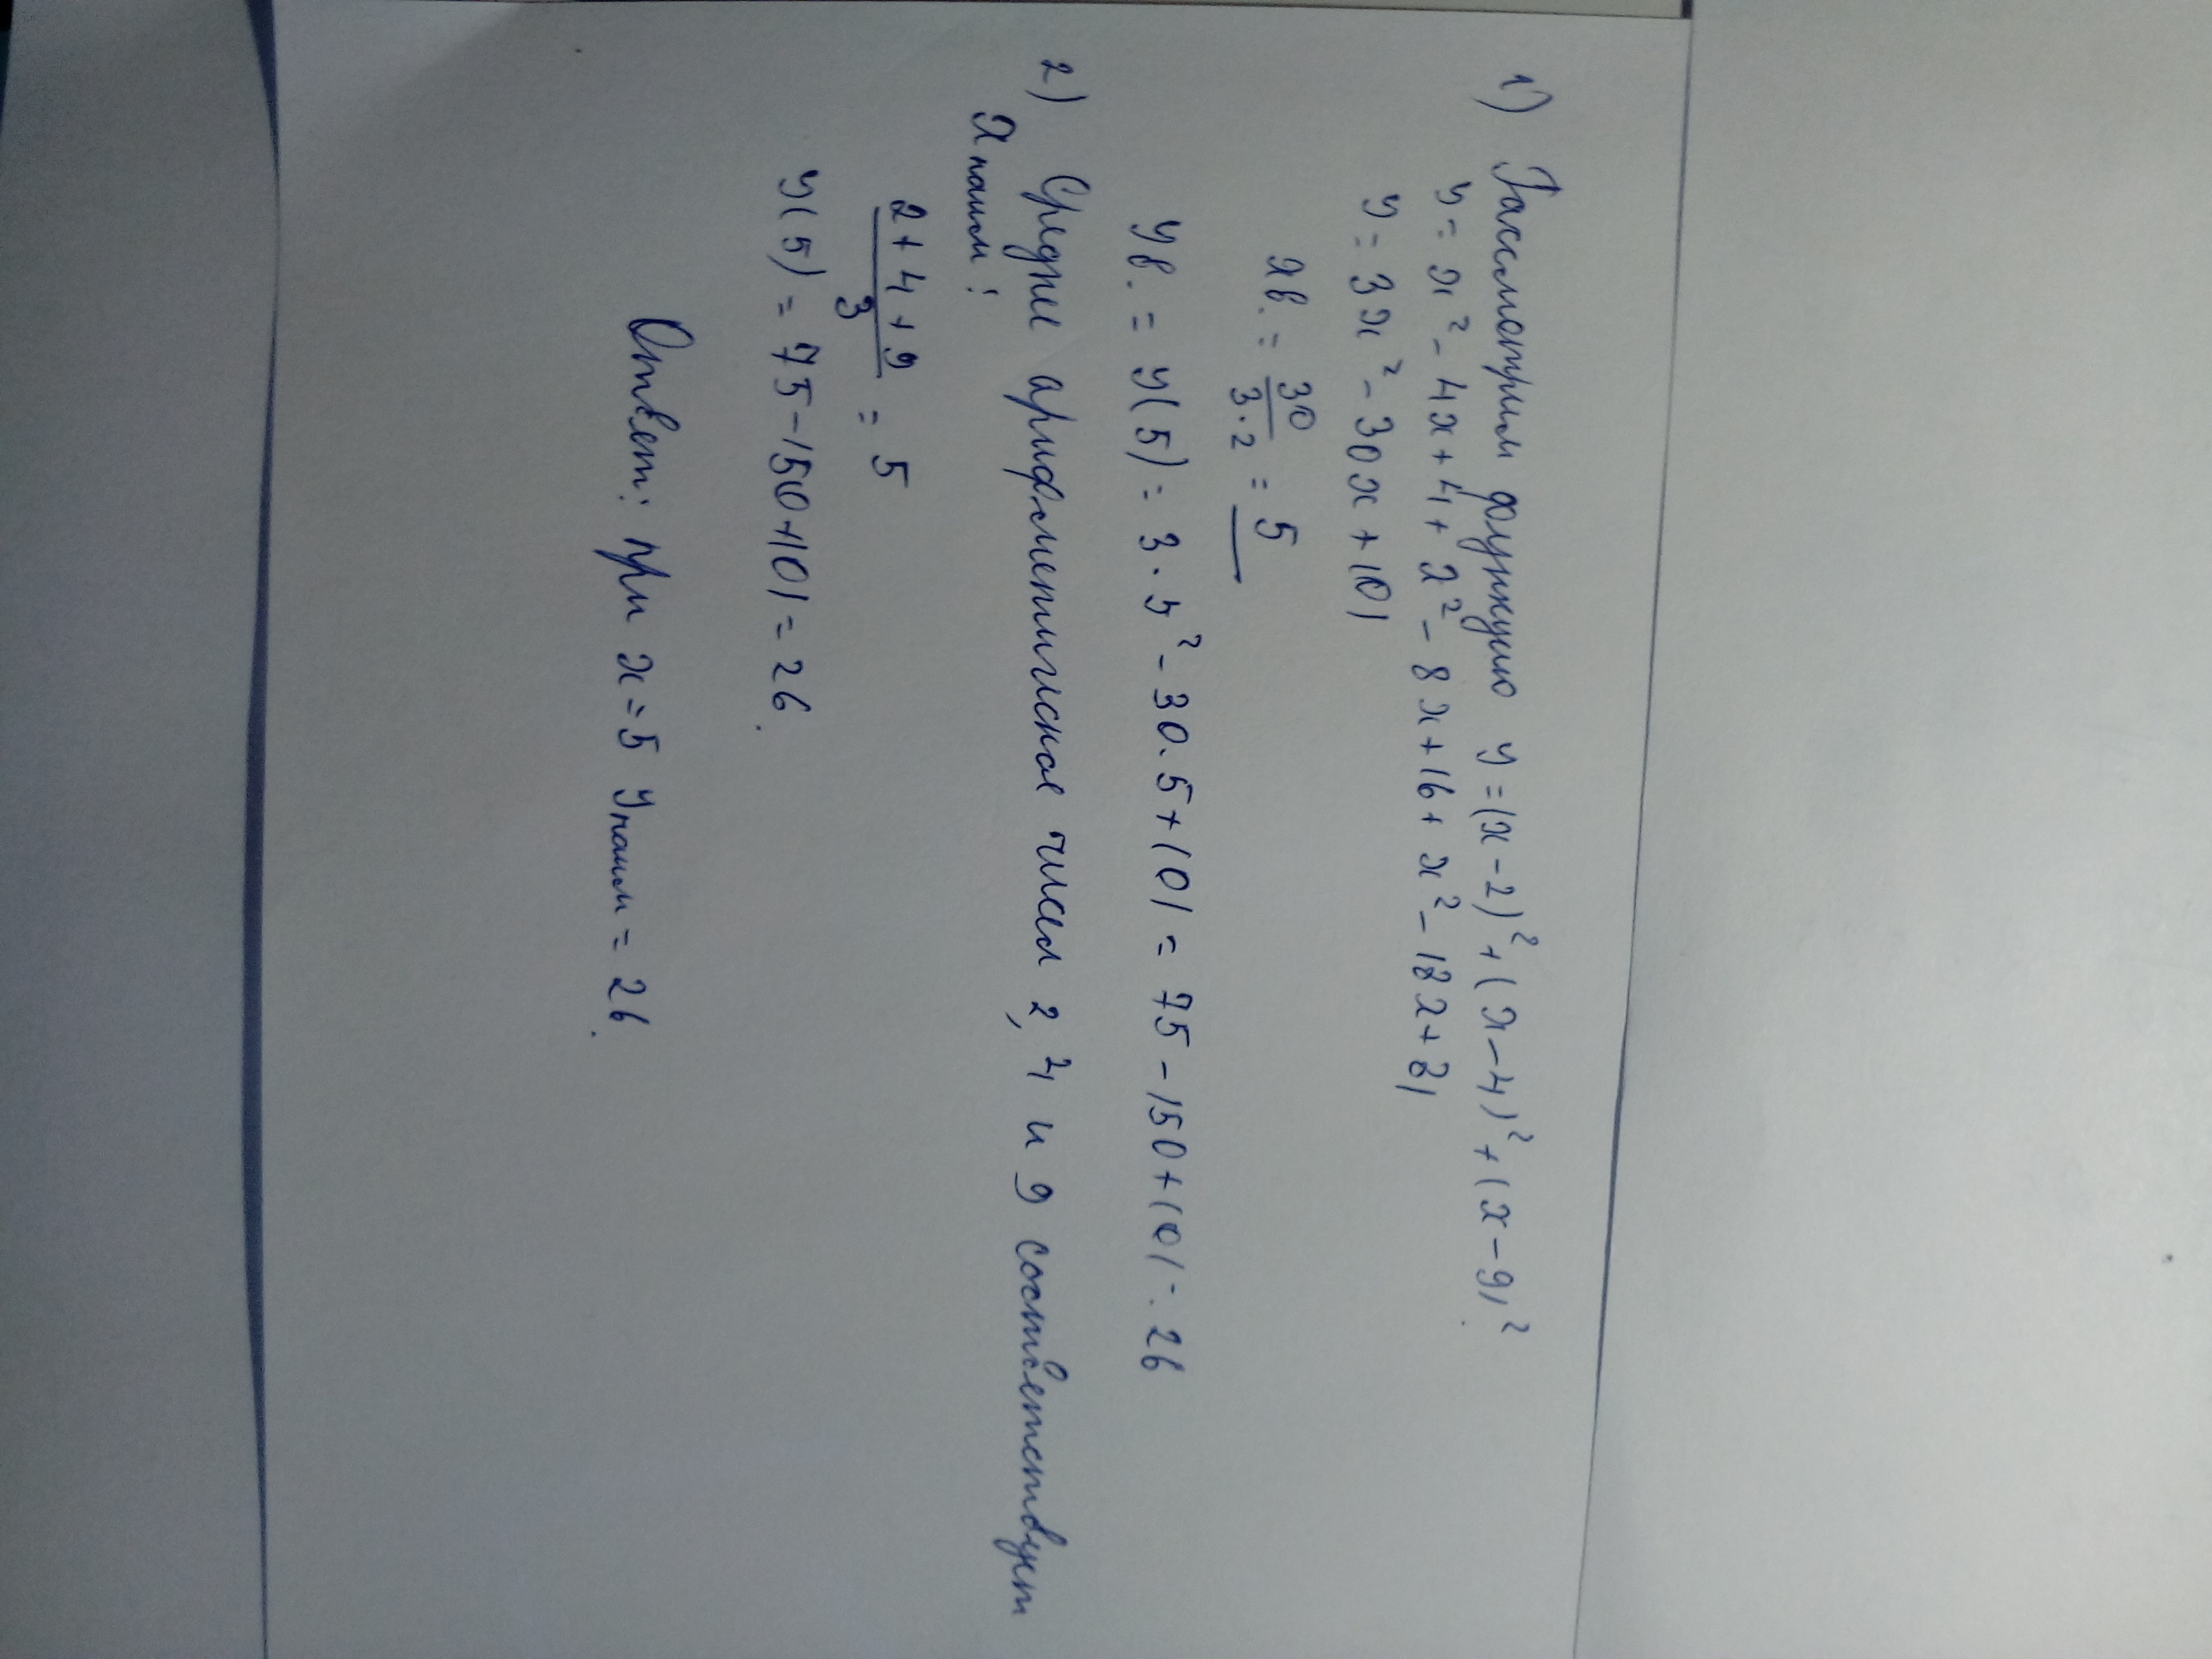 1) Рассмотрим функцию y=(x-2)²+(x-4)²+(x-9)²
y=x²-4x+4+x²-8x+16+x²-18x+81
y=3x²-30x+101
xв.=30/3·2=5
yв.=y(5)=3·5²-30·5+101=75-150+101=26
2) Среднее арифметическое чисел 2, 4 и 9 соответствует
xнаим:
2+4+9/3=5
y(5)=75-150+101=26.
Ответ: при x=5 yнаим=26.